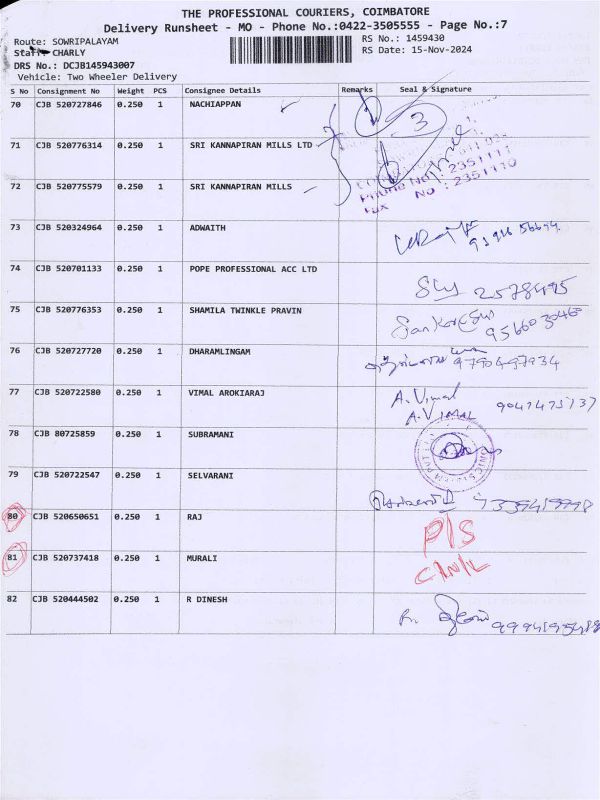 THE PROFESSIONAL COURIERS, COIMBATORE
Delivery Runsheet - MO - Phone No.:0422-3505555 - Page No.:7
Route: SOWRIPALAYAM
RS No.: 1459430
Staff: CHARLY
RS Date: 15-Nov-2024
DRS No.: DCJB145943007
Vehicle: Two Wheeler Delivery
S No Consignment No Weight PCS Consignee Details Remarks Seal & Signature
70 CJB 520727846 0.250 1 NACHIAPPAN
3
71 CJB 520776314 0.250 1 SRI KANNAPIRAN MILLS LTD
Phone No : 2351111
72 CJB 520775579 0.250 1 SRI KANNAPIRAN MILLS
Fax No : 2351110
73 CJB 520324964 0.250 1 ADWAITH
74 CJB 520701133 0.250 1 POPE PROFESSIONAL ACC LTD
2578495
75 CJB 520776353 0.250 1 SHAMILA TWINKLE PRAVIN
76 CJB 520727720 0.250 1 DHARAMLINGAM
9790497934
77 CJB 520722580 0.250 1 VIMAL AROKIARAJ A. Vimal
A. VIMAL
78 CJB 80725859 0.250 1 SUBRAMANI
79 CJB 520722547 0.250 1 SELVARANI
80 CJB 520650651 0.250 1 RAJ P/S
81 CJB 520737418 0.250 1 MURALI C/N/L
82 CJB 520444502 0.250 1 R DINESH